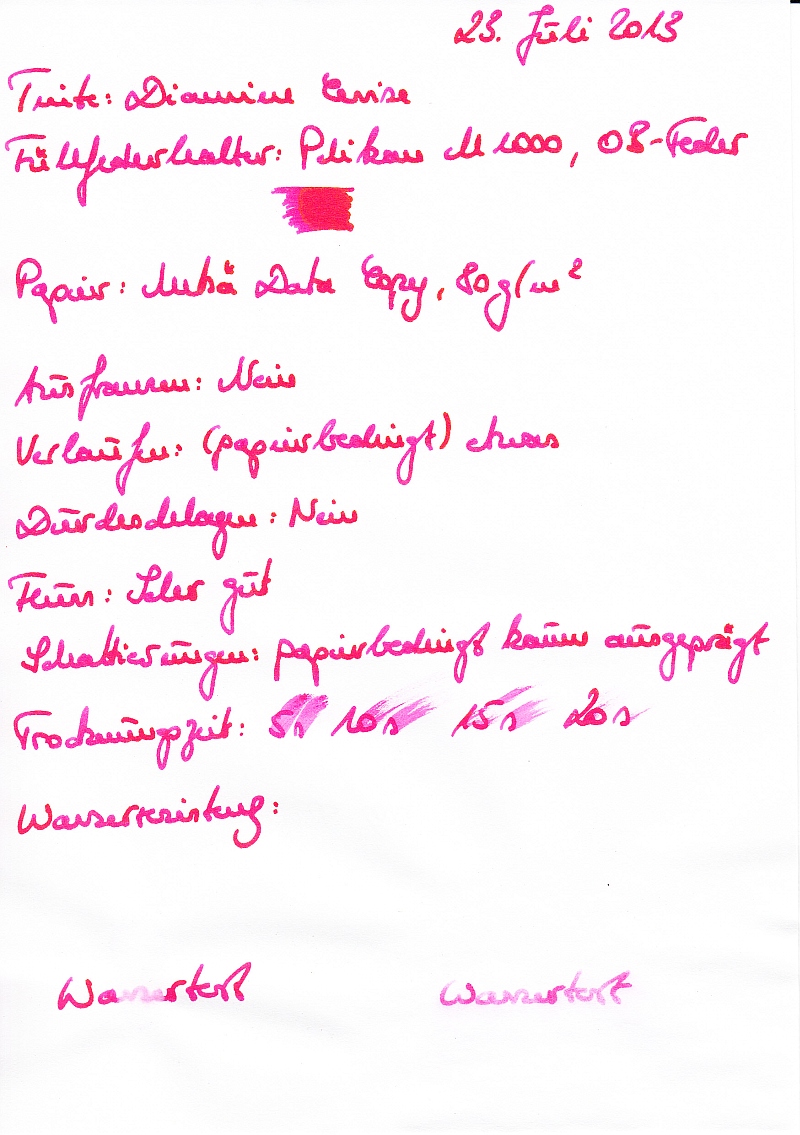 23. Juli 2013
Tinte: Diamine Cerise
Füllfederhalter: Pelikan M 1000, OB-Feder
Papier: Metsä Data Copy, 80 g/m²
Ausfransen: Nein
Verlaufen: (papierbedingt) etwas
Durchschlagen: Nein
Fluss: Sehr gut
Schattierungen: papierbedingt kaum ausgeprägt
Trocknungszeit: 5s 10s 15s 20s
Wasserfestigkeit:
Wassertest Wassertest